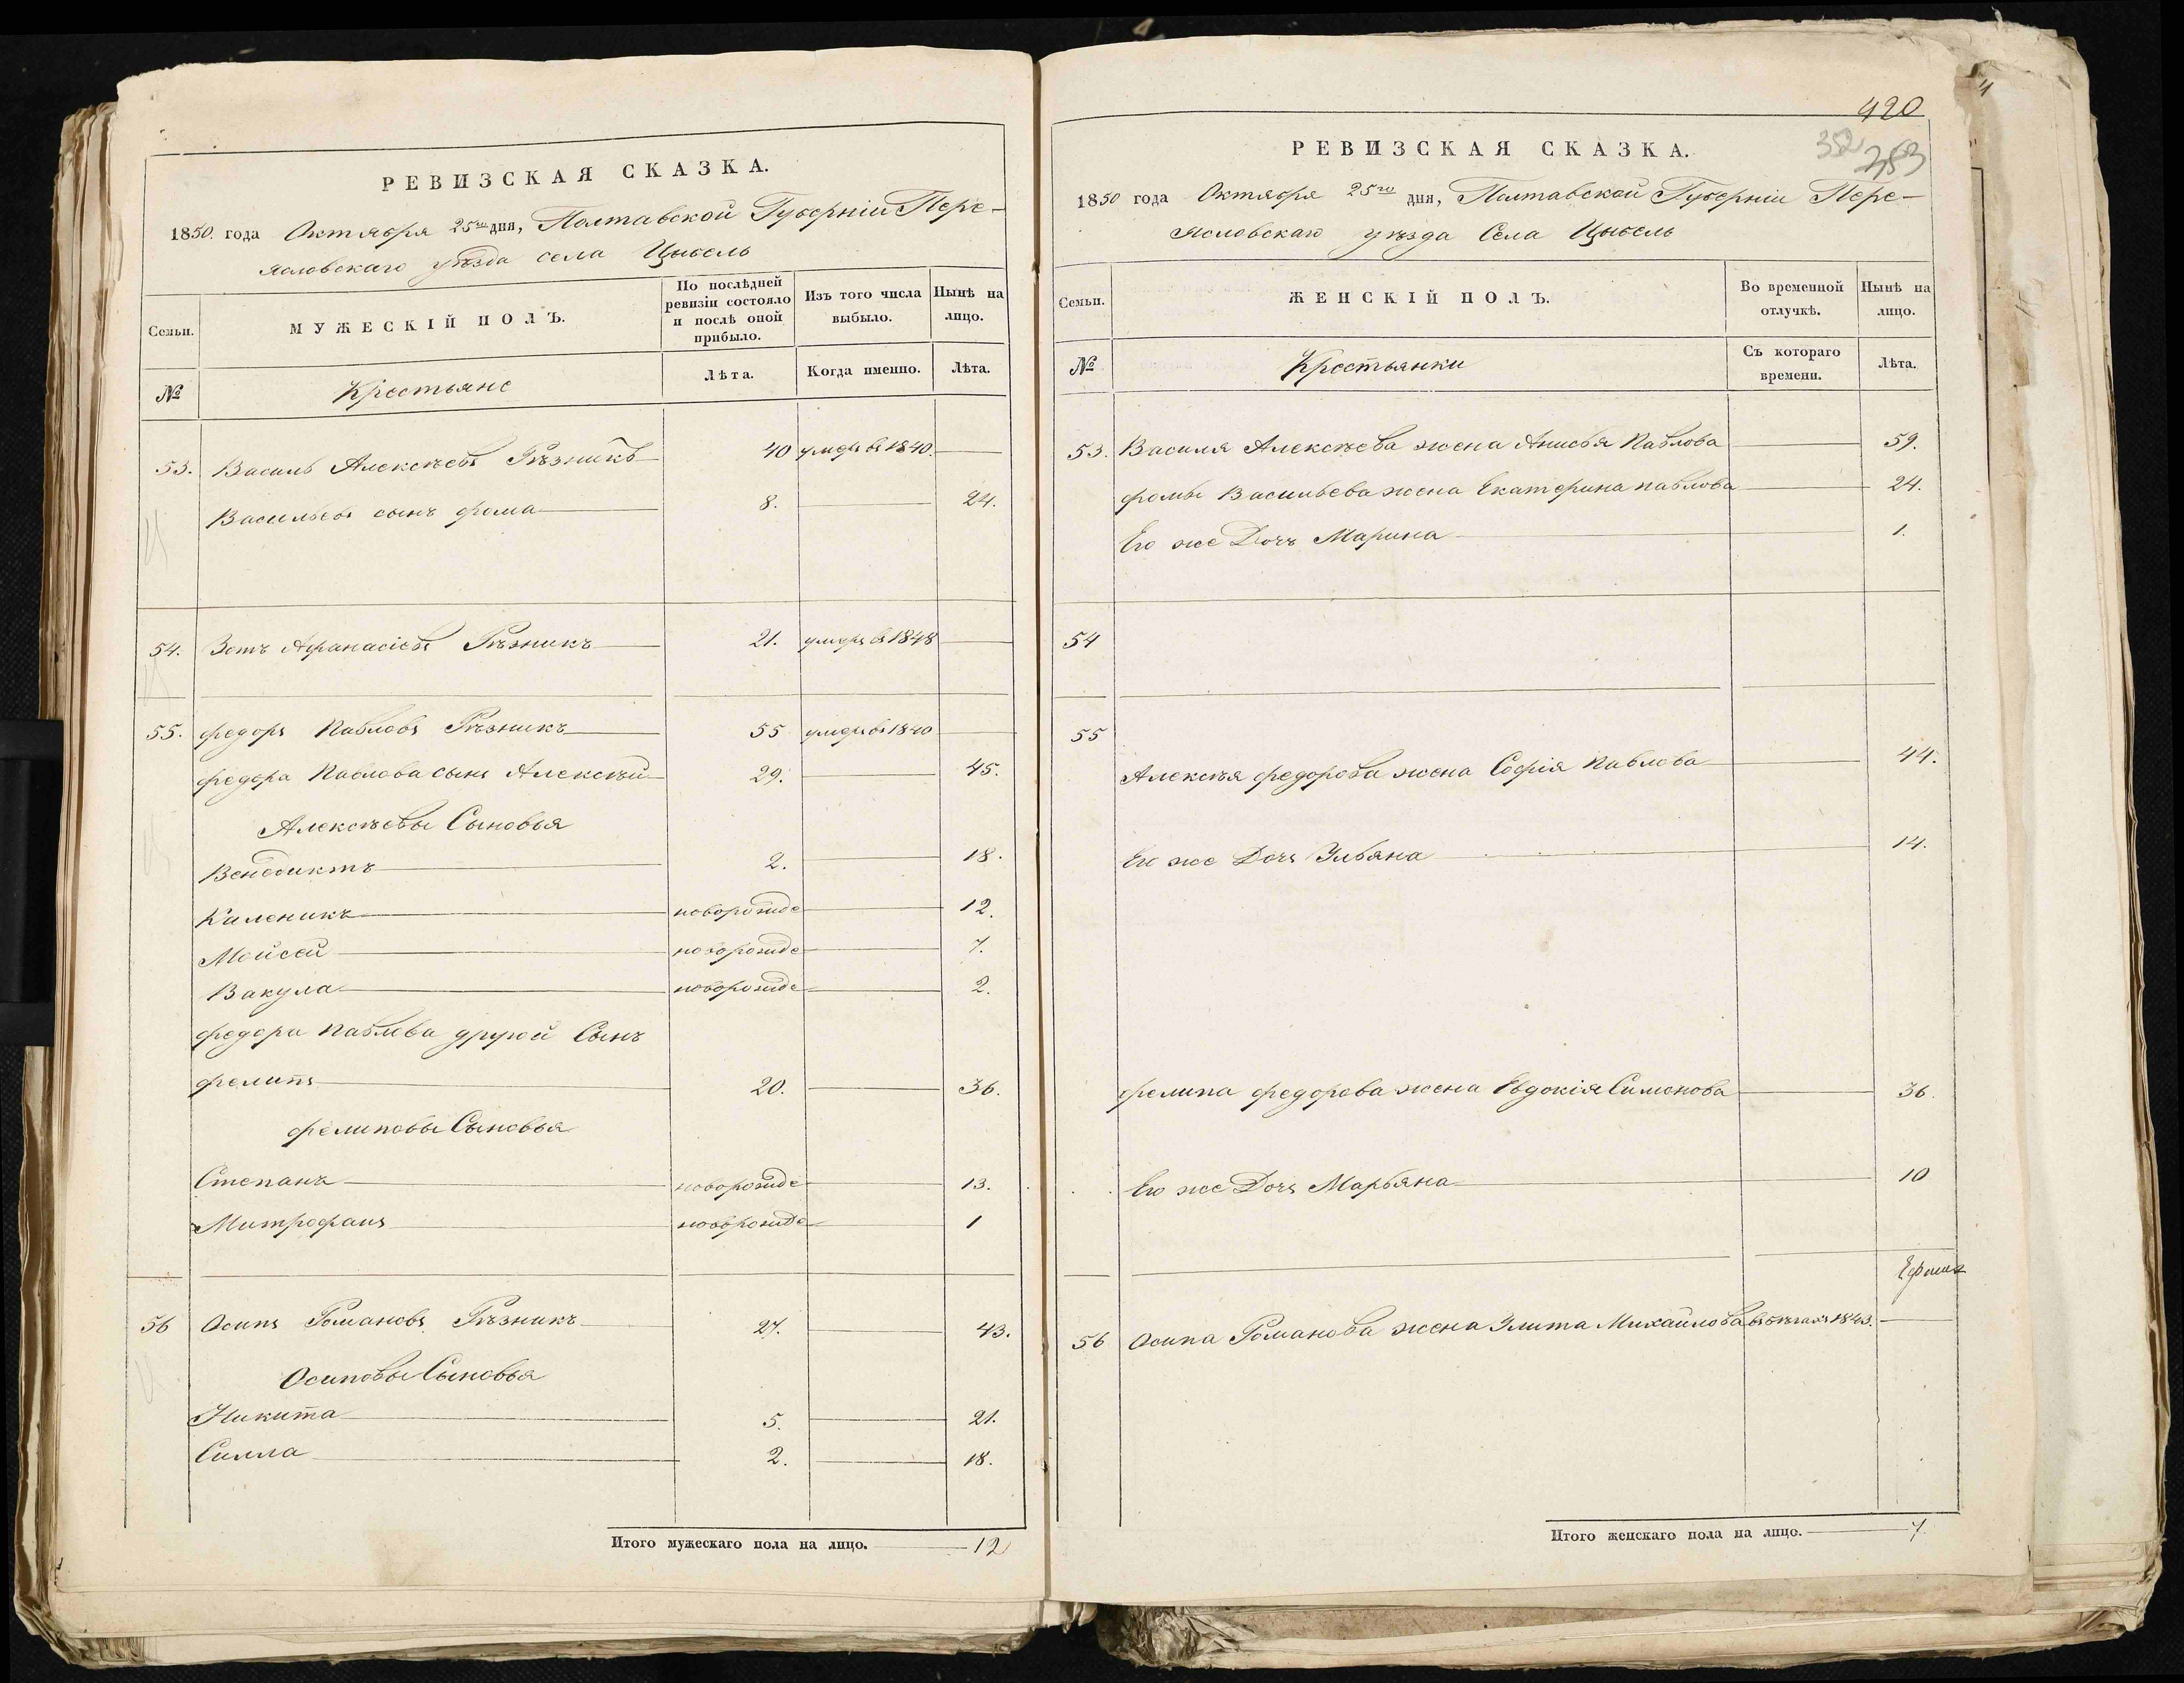 РЕВИЗСКАЯ СКАЗКА.
1850. года Октября 25го дня, Полтавской Губерніи Пере-
ясловскаго уѣзда села Цыбель
Семьи.
МУЖЕСКІЙ ПОЛЪ.
По послѣдней
ревизіи состояло
и послѣ оной
прибыло.
Изъ того числа
выбыло.
Нынѣ на
лицо.
№
Крестьяне
Лѣта.
Когда именно.
Лѣта.
53. Василь Алексѣевъ Рѣзникъ 40 умеръ въ 1840.
Васильевъ сынъ фома 8. 24.
54. Зотъ Афанасіевъ Рѣзникъ 21. умеръ въ 1848
55. федоръ Павловъ Рѣзникъ 55 умеръ въ 1840
федора Павлова сынъ Алексѣй 29. 45.
Алексѣевы Сыновья
Венедиктъ 2. 18.
Каленикъ новорожде 12.
Мойсей новорожде 7.
Вакула новорожде 2.
федора Павлова другой Сынъ
филипъ 20. 36.
филиповы Сыновья
Степанъ новорожде 13.
Митрофанъ новорожде 1
56 Осипъ Романовъ Рѣзникъ 27. 43.
Осиповы Сыновья
Никита 5. 21.
Силла 2. 18.
Итого мужескаго пола на лицо. 12
420
352
353
РЕВИЗСКАЯ СКАЗКА.
1850 года Октября 25го дня, Полтавской Губерніи Пере-
ясловскаго уѣзда Села Цыбель
Семьи.
ЖЕНСКІЙ ПОЛЪ.
Во временной
отлучкѣ.
Нынѣ на
лицо.
№
Крестьянки
Съ котораго
времени.
Лѣта.
53. Василя Алексѣева жена Анисья Павлова 59.
фомы Васильева жена Екатерина павлова 24.
Его же Дочъ Марина 1.
54
55
Алексѣя федорова жена Софія Павлова 44.
Его же Дочъ Ульяна 14.
филипа федорова жена Евдокія Симонова 36.
Его же Дочъ Марьяна 10
56 Осипа Романова жена Улита Михайлова въ бѣгахъ 1843.
Итого женскаго пола на лицо. 7